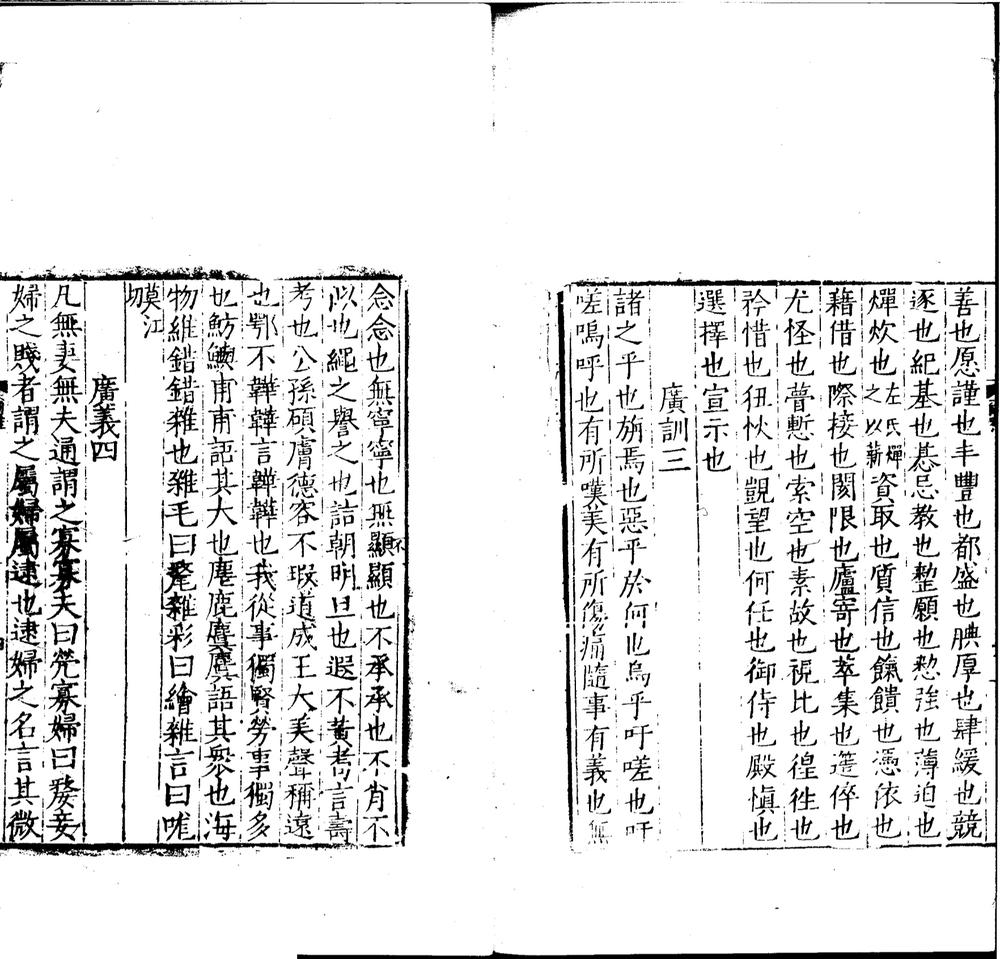 善也愿謹也丰豐也都盛也腆厚也肆緩也競
逐也紀基也惎忌教也整願也愸強也薄迫也
燀炊也左氏燀之以薪資取也質信也餼饋也憑依也
藉借也際接也閡限也廬寄也萃集也簉倅也
尤怪也瞢慙也索空也素故也視比也徨徃也
矜惜也忸忕也觀望也何任也御侍也殿愼也
選擇也宣示也
廣訓三
諸之乎也旃焉也惡乎於何也烏乎吁嗟也吁
嗟嗚呼也有所嘆美有所傷痛隨事有義也無
念念也無寧寧也無不顯顯也不承承也不肖不
似也繩之譽之也詰朝明旦也遐不黃耇言壽
考也公孫碩膚德容不瑕道成王大美聲稱遠
也鄂不韡韡言韡韡也我從事獨賢勞事獨多
也魴鱮甫甫語其大也麀鹿麌麌語其衆也海
物維錯錯雜也雜毛曰氂雜彩曰繪雜言曰哤
莫江切
廣義四
凡無妻無夫通謂之寡寡夫曰煢寡婦曰嫠妾
婦之賤者謂之屬婦屬逮也逮婦之名言其微